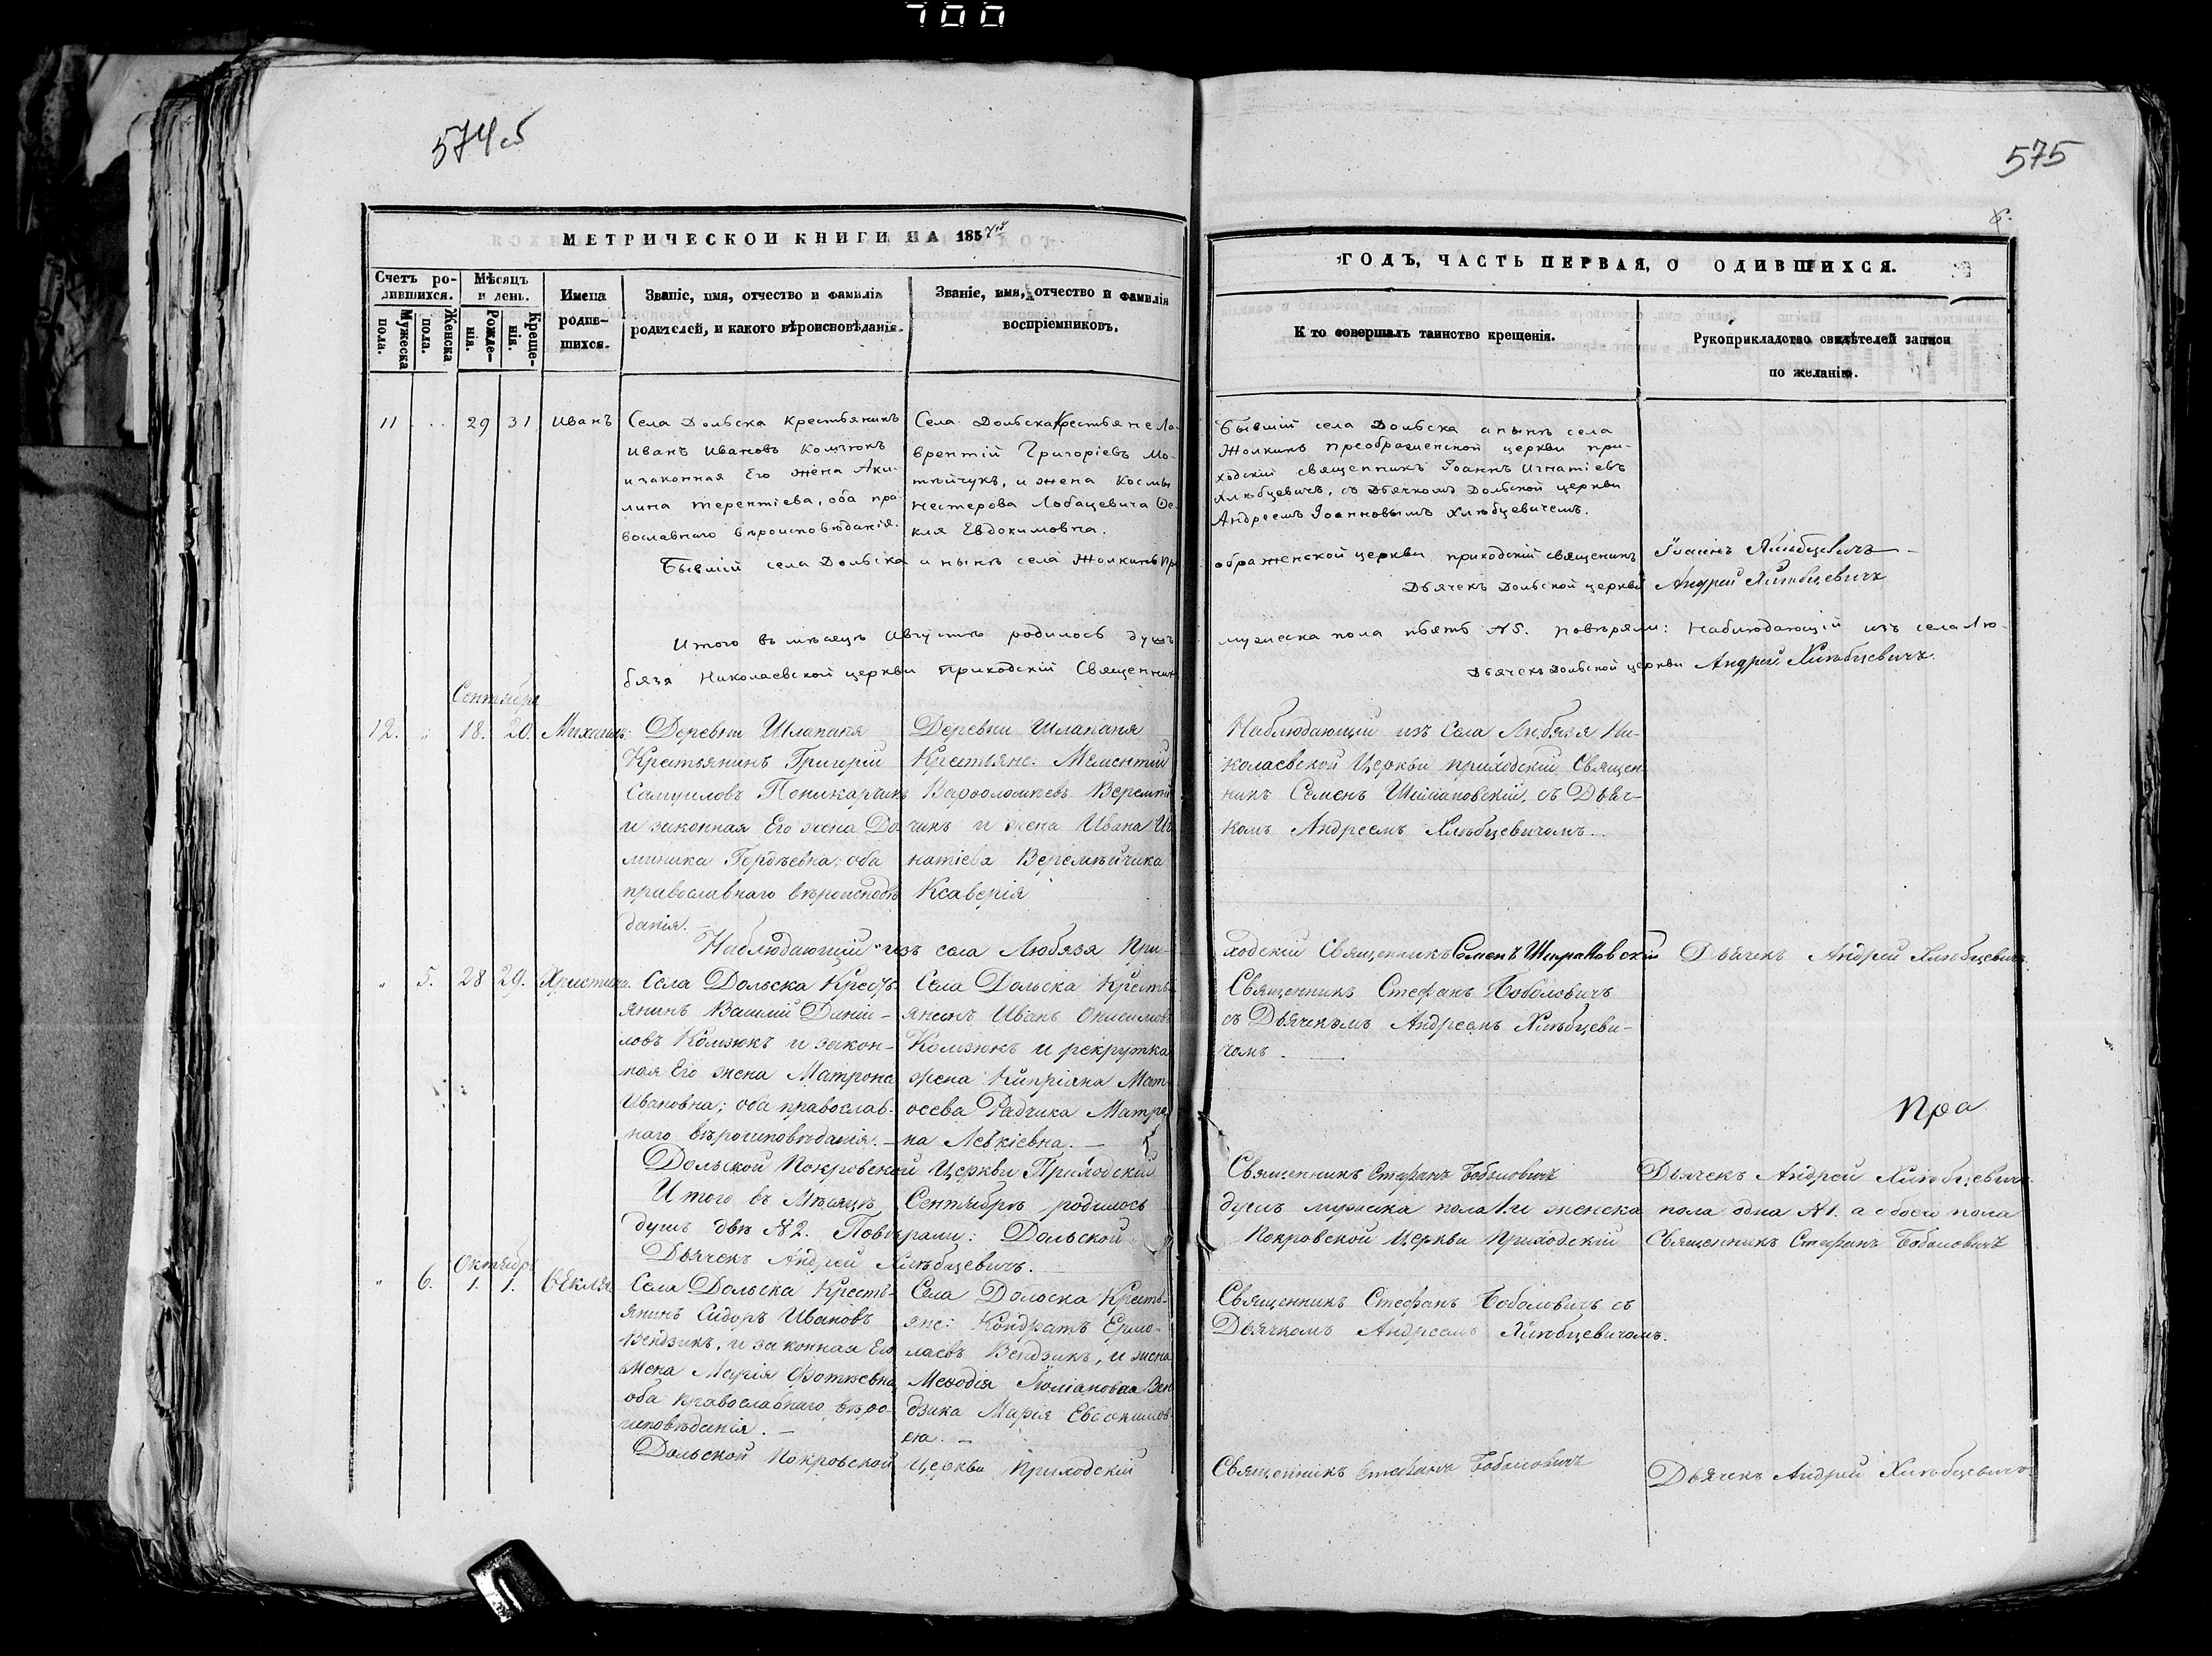 700
574об
575
6.
МЕТРИЧЕСКОЙ КНИГИ НА 1857й
ГОДЪ, ЧАСТЬ ПЕРВАЯ, О ОДИВШИХСЯ.
Счетъ ро-
дившихся.
Мужеска
пола.
Женска
пола.
Мѣсяцъ
и день.
Рожде-
нія.
Креще-
нія.
Имена
родив-
шихся.
Званіе, имя, отчество и фамилія
родителей, и какого вѣроисповѣданія.
Званіе, имя, отчество и фамилія
воспріемниковъ.
Кто совершалъ таинство крещенія.
Рукоприкладство свидѣтелей записи
по желанію.
11 29 31 Иванъ
Села Дольска Крестьянинъ
Иванъ Ивановъ Комзюкъ
и законная Его жена Аки-
лина Терентіева, оба пра-
вославнаго вѣроисповѣданія.
Села Дольска Крестьяне Ла-
врентій Григоріевъ Мо-
тѣйчукъ, и жена Космы
Нестерова Лобацевича Ѳе-
кля Евдокимовна.
Бывшій села Дольска а нынѣ села
Жолкинь Преображенской церкви при-
ходскій священникъ Іоаннъ Игнатіевъ
Хлѣбцевичъ, съ Дьячкомъ Дольской церкви
Андреемъ Іоанновымъ Хлѣбцевичемъ.
Бывшій села Дольска а нынѣ села Жолкинь Пре
ображенской церкви приходскій священникъ Іоаннъ Хлѣбцевичъ
Дьячекъ Дольской церкви Андрей Хлѣбцевичъ
Итого въ мѣсяцѣ Августѣ родилось душъ
мужеска пола пять №5. повѣряли: Наблюдающій изъ села Лю-
бязя Николаевской церкви Приходскій Священникъ
Дьячекъ Дольской церкви Андрей Хлѣбцевичъ.
Сентябрь
12. 18. 20. Михаилъ.
Деревни Шлапаня
Крестьянинъ Григорій
Самуиловъ Поникарчикъ
и законная Его жена До
миника Гордѣевна; оба
православнаго вѣроисповѣ
данія.
Деревни Шлапаня
Крестьяне: Мелентій
Варѳоломеевъ Веремѣй
чикъ и жена Ивана Иг
натіева Веремѣйчика
Ксаверія
Наблюдающій изъ Села Любязя Ни-
колаевской Церкви приходскій Священ-
никъ Семенъ Шимановскій, съ Дьяч-
комъ Андреемъ Хлѣбцевичомъ.
Наблюдающій изъ села Любязя При-
ходскій Священникъ Семенъ Шимановскій Дьячекъ Андрей Хлѣбцевичъ.
5. 28 29. Христина.
Села Дольска Кресть-
янинъ Василій Даній-
ловъ Комзюкъ и закон-
ная Его жена Матрона
Ивановна; оба православ-
наго вѣроисповѣданія.
Села Дольска Кресть-
янинъ Иванъ Онисимовъ
Комзюкъ и рекрутка
жена Кипріяна Мат-
ѳеева Радчика Матро
на Левкіевна.
Священникъ Стефанъ Боболовичъ
съ Дьячкомъ Андреемъ Хлѣбцеви-
чомъ.
Пра
Дольской Покровской Церкви Приходскій
Священникъ Стефанъ Боболовичъ Дьячекъ Андрей Хлѣбцевичъ.
Итого въ Мѣсяцѣ Сентябрѣ родилось
душъ мужеска пола 1 и женска пола одна №1. а обоего пола
душъ двѣ №2. Повѣряли: Дольской
Покровской Церкви Приходскій Священникъ Стефанъ Боболовичъ
Дьячекъ Андрей Хлѣбцевичъ.
Октябрь
6. 1. 1. Ѳекла.
Села Дольска Кресть-
янинъ Сидоръ Ивановъ
Вендзикъ, и законная Его
жена Марія Фотіевна
оба православнаго вѣро-
исповѣданія.
Села Дольска Кресть-
яне: Кондратъ Ермо-
лаевъ Вендзикъ, и жена
Меѳодія Юліанова Вен
дзика Марія Евдокимов
на.
Священникъ Стефанъ Боболовичъ съ
Дьячкомъ Андреемъ Хлѣбцевичомъ.
Дольской Покровской Церкви Приходскій
Священникъ Стефанъ Боболовичъ
Дьячекъ Андрей Хлѣбцевичъ